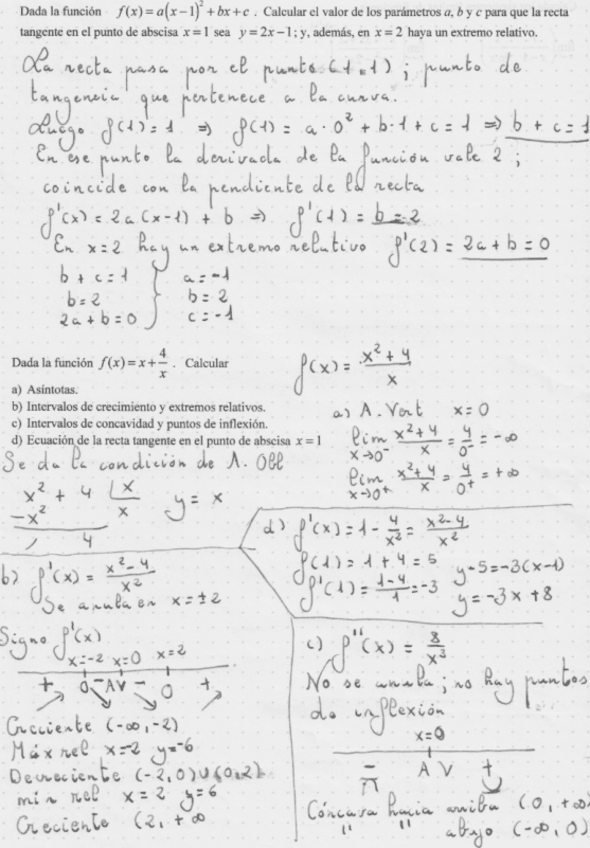 Dada la función f(x)=a(x−1)²+bx+c . Calcular el valor de los parámetros a, b y c para que la recta
tangente en el punto de abscisa x=1 sea y=2x−1; y, además, en x=2 haya un extremo relativo.
La recta pasa por el punto (1,1); punto de
tangencia que pertenece a la curva.
Luego f(1)=1 ⇒ f(1) = a·0²+b·1+c=1 ⇒ b+c=1
En ese punto la derivada de la función vale 2;
coincide con la pendiente de la recta
f'(x)=2a(x-1)+b ⇒ f'(1)=b=2
En x=2 hay un extremo relativo f'(2)=2a+b=0
b+c=1 } a=-1
b=2 b=2
2a+b=0 c=-1
Dada la función f(x)=x+4/x . Calcular
a) Asíntotas.
b) Intervalos de crecimiento y extremos relativos.
c) Intervalos de concavidad y puntos de inflexión.
d) Ecuación de la recta tangente en el punto de abscisa x=1
f(x)= x²+4/x
a) A. Vert x=0
lim x→0⁻ x²+4/x = 4/0⁻ = -∞
lim x→0⁺ x²+4/x = 4/0⁺ = +∞
Se da la condición de A. Obl
x²+4 | x
-x² x y=x
4
d) f'(x)=1-4/x²= x²-4/x²
f(1)=1+4=5
f'(1)= 1-4/1 =-3
y-5=-3(x-1)
y=-3x+8
b) f'(x)= x²-4/x²
Se anula en x=±2
Signo f'(x)
x=-2 x=0 x=2
+ 0 - AV - 0 +
Creciente (-∞,-2)
Máx rel x=-2 y=-6
Decreciente (-2,0)∪(0,2)
mín rel x=2 y=6
Creciente (2,+∞
c) f''(x)= 8/x³
No se anula; no hay puntos
de inflexión
x=0
- AV +
∩ ∪
Cóncava hacia arriba (0,+∞)
" " abajo (-∞,0)